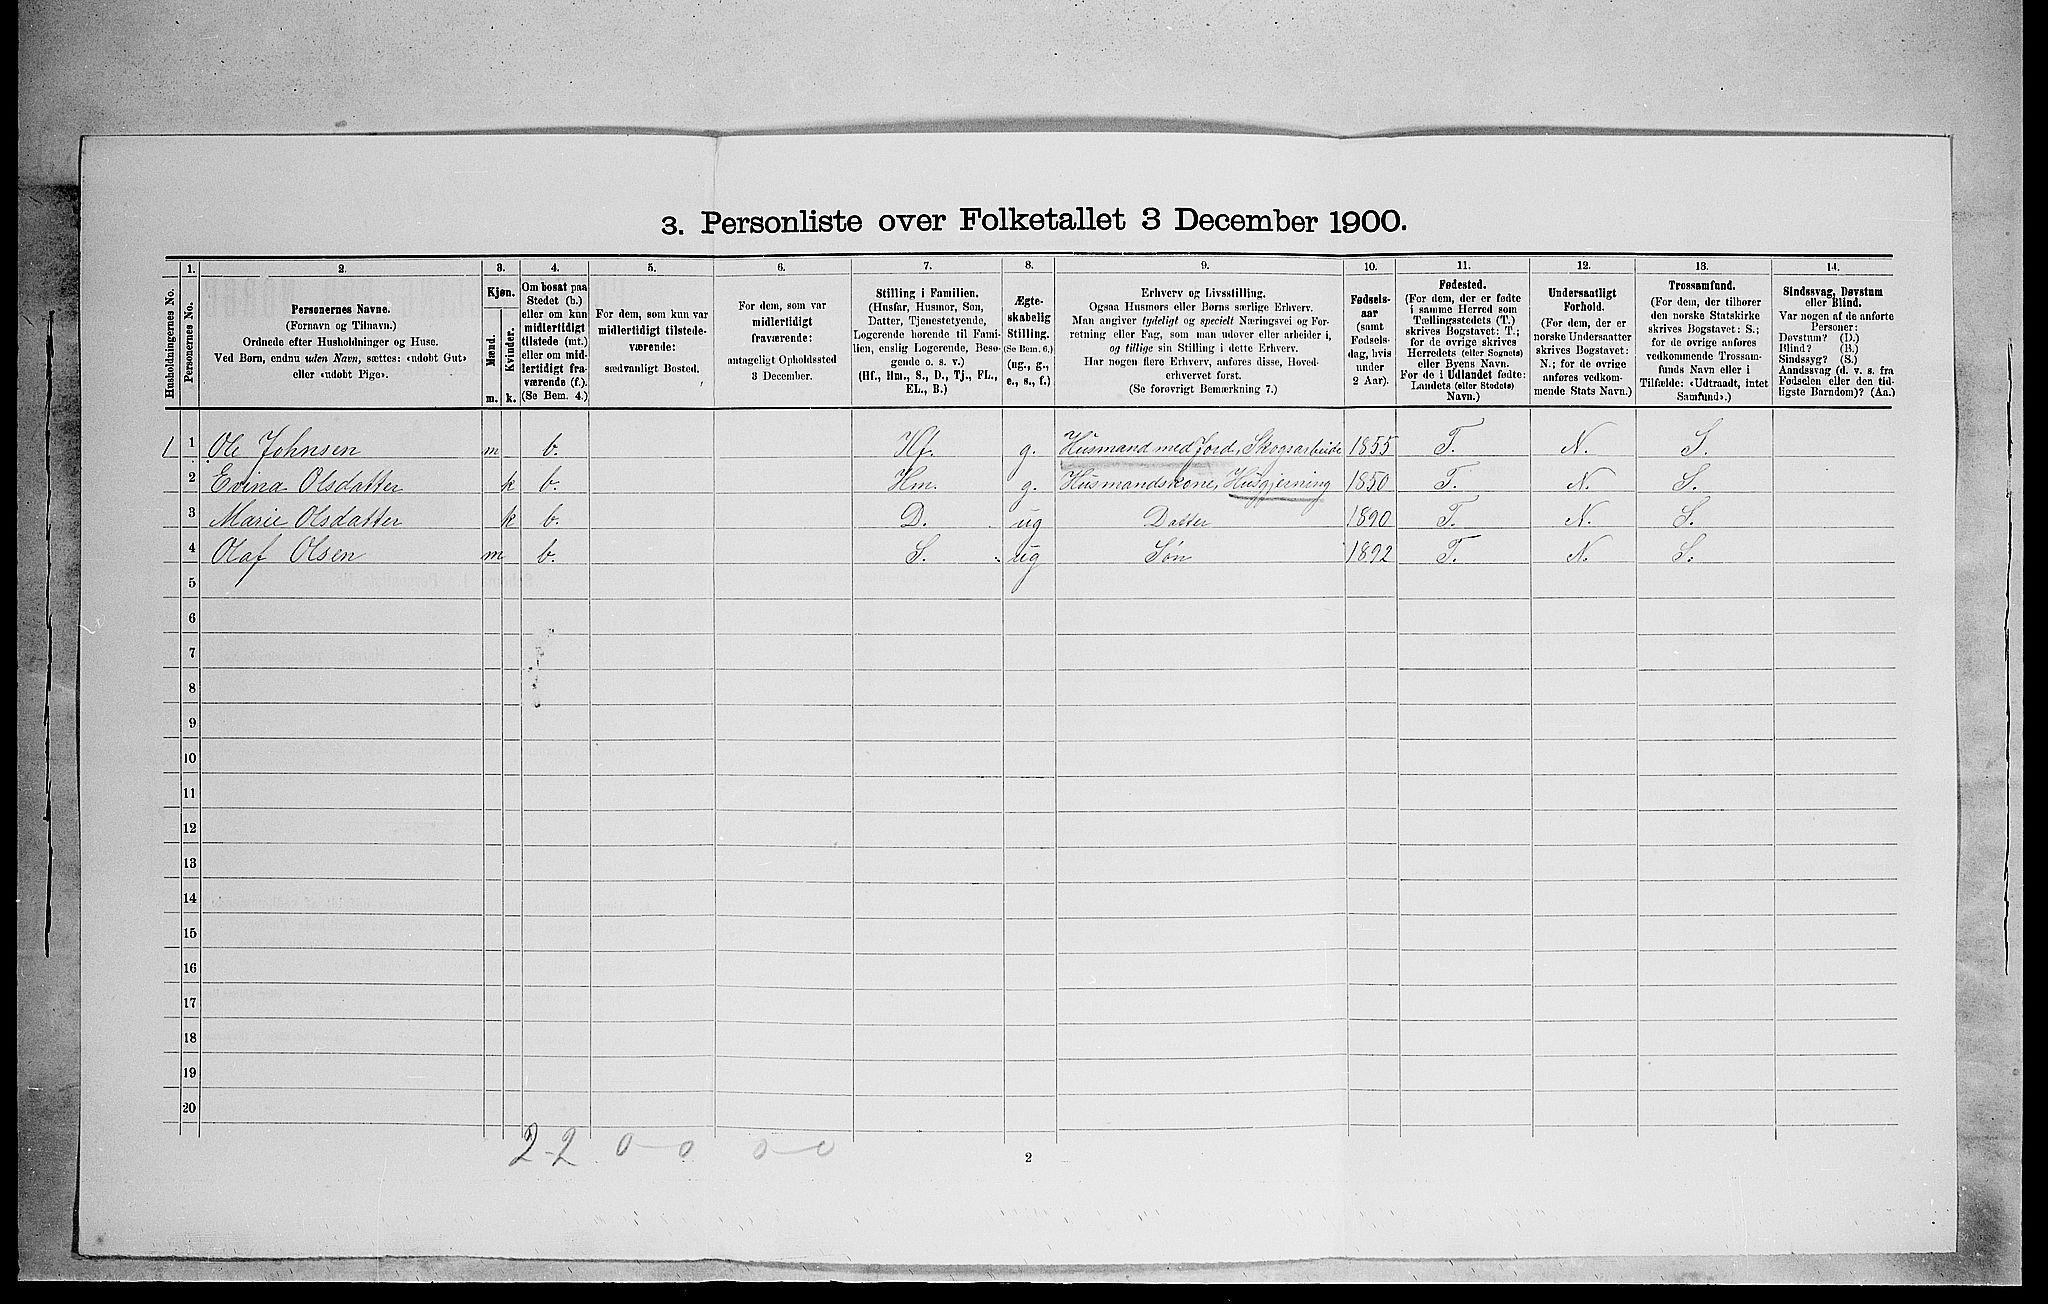 3. Personliste over Folketallet 3 December 1900.
Husholdningernes No.
1.
Personernes No.
2.
Personernes Navne.
(Fornavn og Tilnavn.)
Ordnede efter Husholdninger og Huse.
Ved Børn, endnu uden Navn, sættes: «udøbt Gut»
eller «udøbt Pige».
3.
Kjøn.
Mænd.
Kvinder.
m. k.
4.
Om bosat paa
Stedet (b.)
eller om kun
midlertidigt
tilstede (mt.)
eller om mid-
lertidigt fra-
værende (f.).
(Se Bem. 4.)
5.
For dem, som kun var
midlertidigt tilstede-
værende:
sædvanligt Bosted.
6.
For dem, som var
midlertidigt
fraværende:
antageligt Opholdssted
3 December.
7.
Stilling i Familien.
(Husfar, Husmor, Søn,
Datter, Tjenestetyende,
Logerende hørende til Fami-
lien, enslig Logerende, Besø-
gende o. s. v.)
(Hf., Hm., S., D., Tj., FL.,
EL., B.)
8.
Ægte-
skabelig
Stilling.
(Se Bem. 6.)
(ug., g.,
e., s., f.)
9.
Erhverv og Livsstilling.
Ogsaa Husmors eller Børns særlige Erhverv.
Man angiver tydeligt og specielt Næringsvei og For-
retning eller Fag, som man udøver eller arbeider i,
og tillige sin Stilling i dette Erhverv.
Har nogen flere Erhverv, anføres disse, Hoved-
erhvervet først.
(Se forøvrigt Bemærkning 7.)
10.
Fødsels-
aar
(samt
Fødsels-
dag, hvis
under
2 Aar).
11.
Fødested.
(For dem, der er fødte
i samme Herred som
Tællingsstedets (T.)
skrives Bogstavet: T.;
for de øvrige skrives
Herredets (eller Sognets)
eller Byens Navn.
For de i Udlandet fødte:
Landets (eller Stedets)
Navn.)
12.
Undersaatligt
Forhold.
(For dem, der er
norske Undersaatter
skrives Bogstavet:
N.; for de øvrige
anføres vedkom-
mende Stats Navn.)
13.
Trossamfund.
(For dem, der tilhører
den norske Statskirke
skrives Bogstavet: S.;
for de øvrige anføres
vedkommende Trossam-
funds Navn eller i
Tilfælde: «Udtraadt, intet
Samfund».)
14.
Sindssvag, Døvstum
eller Blind.
Var nogen af de anførte
Personer:
Døvstum? (D.)
Blind? (B.)
Sindssyg? (S.)
Aandssvag (d. v. s. fra
Fødselen eller den tid-
ligste Barndom)? (Aa.)
1 1 Ole Johnsen m b. Hf. g. Husmand med Jord, Skogsarbeide 1855 T. N. S.
2 Evina Olsdatter k b. Hm. g. Husmandskone, Husgjerning 1850 T. N. S.
3 Marie Olsdatter k b. D. ug Datter 1890 T. N. S.
4 Olaf Olsen m b. S. ug Søn 1892 T. N. S.
5
6
7
8
9
10
11
12
13
14
15
16
17
18
19
20
2-2 0-0 0-0
2